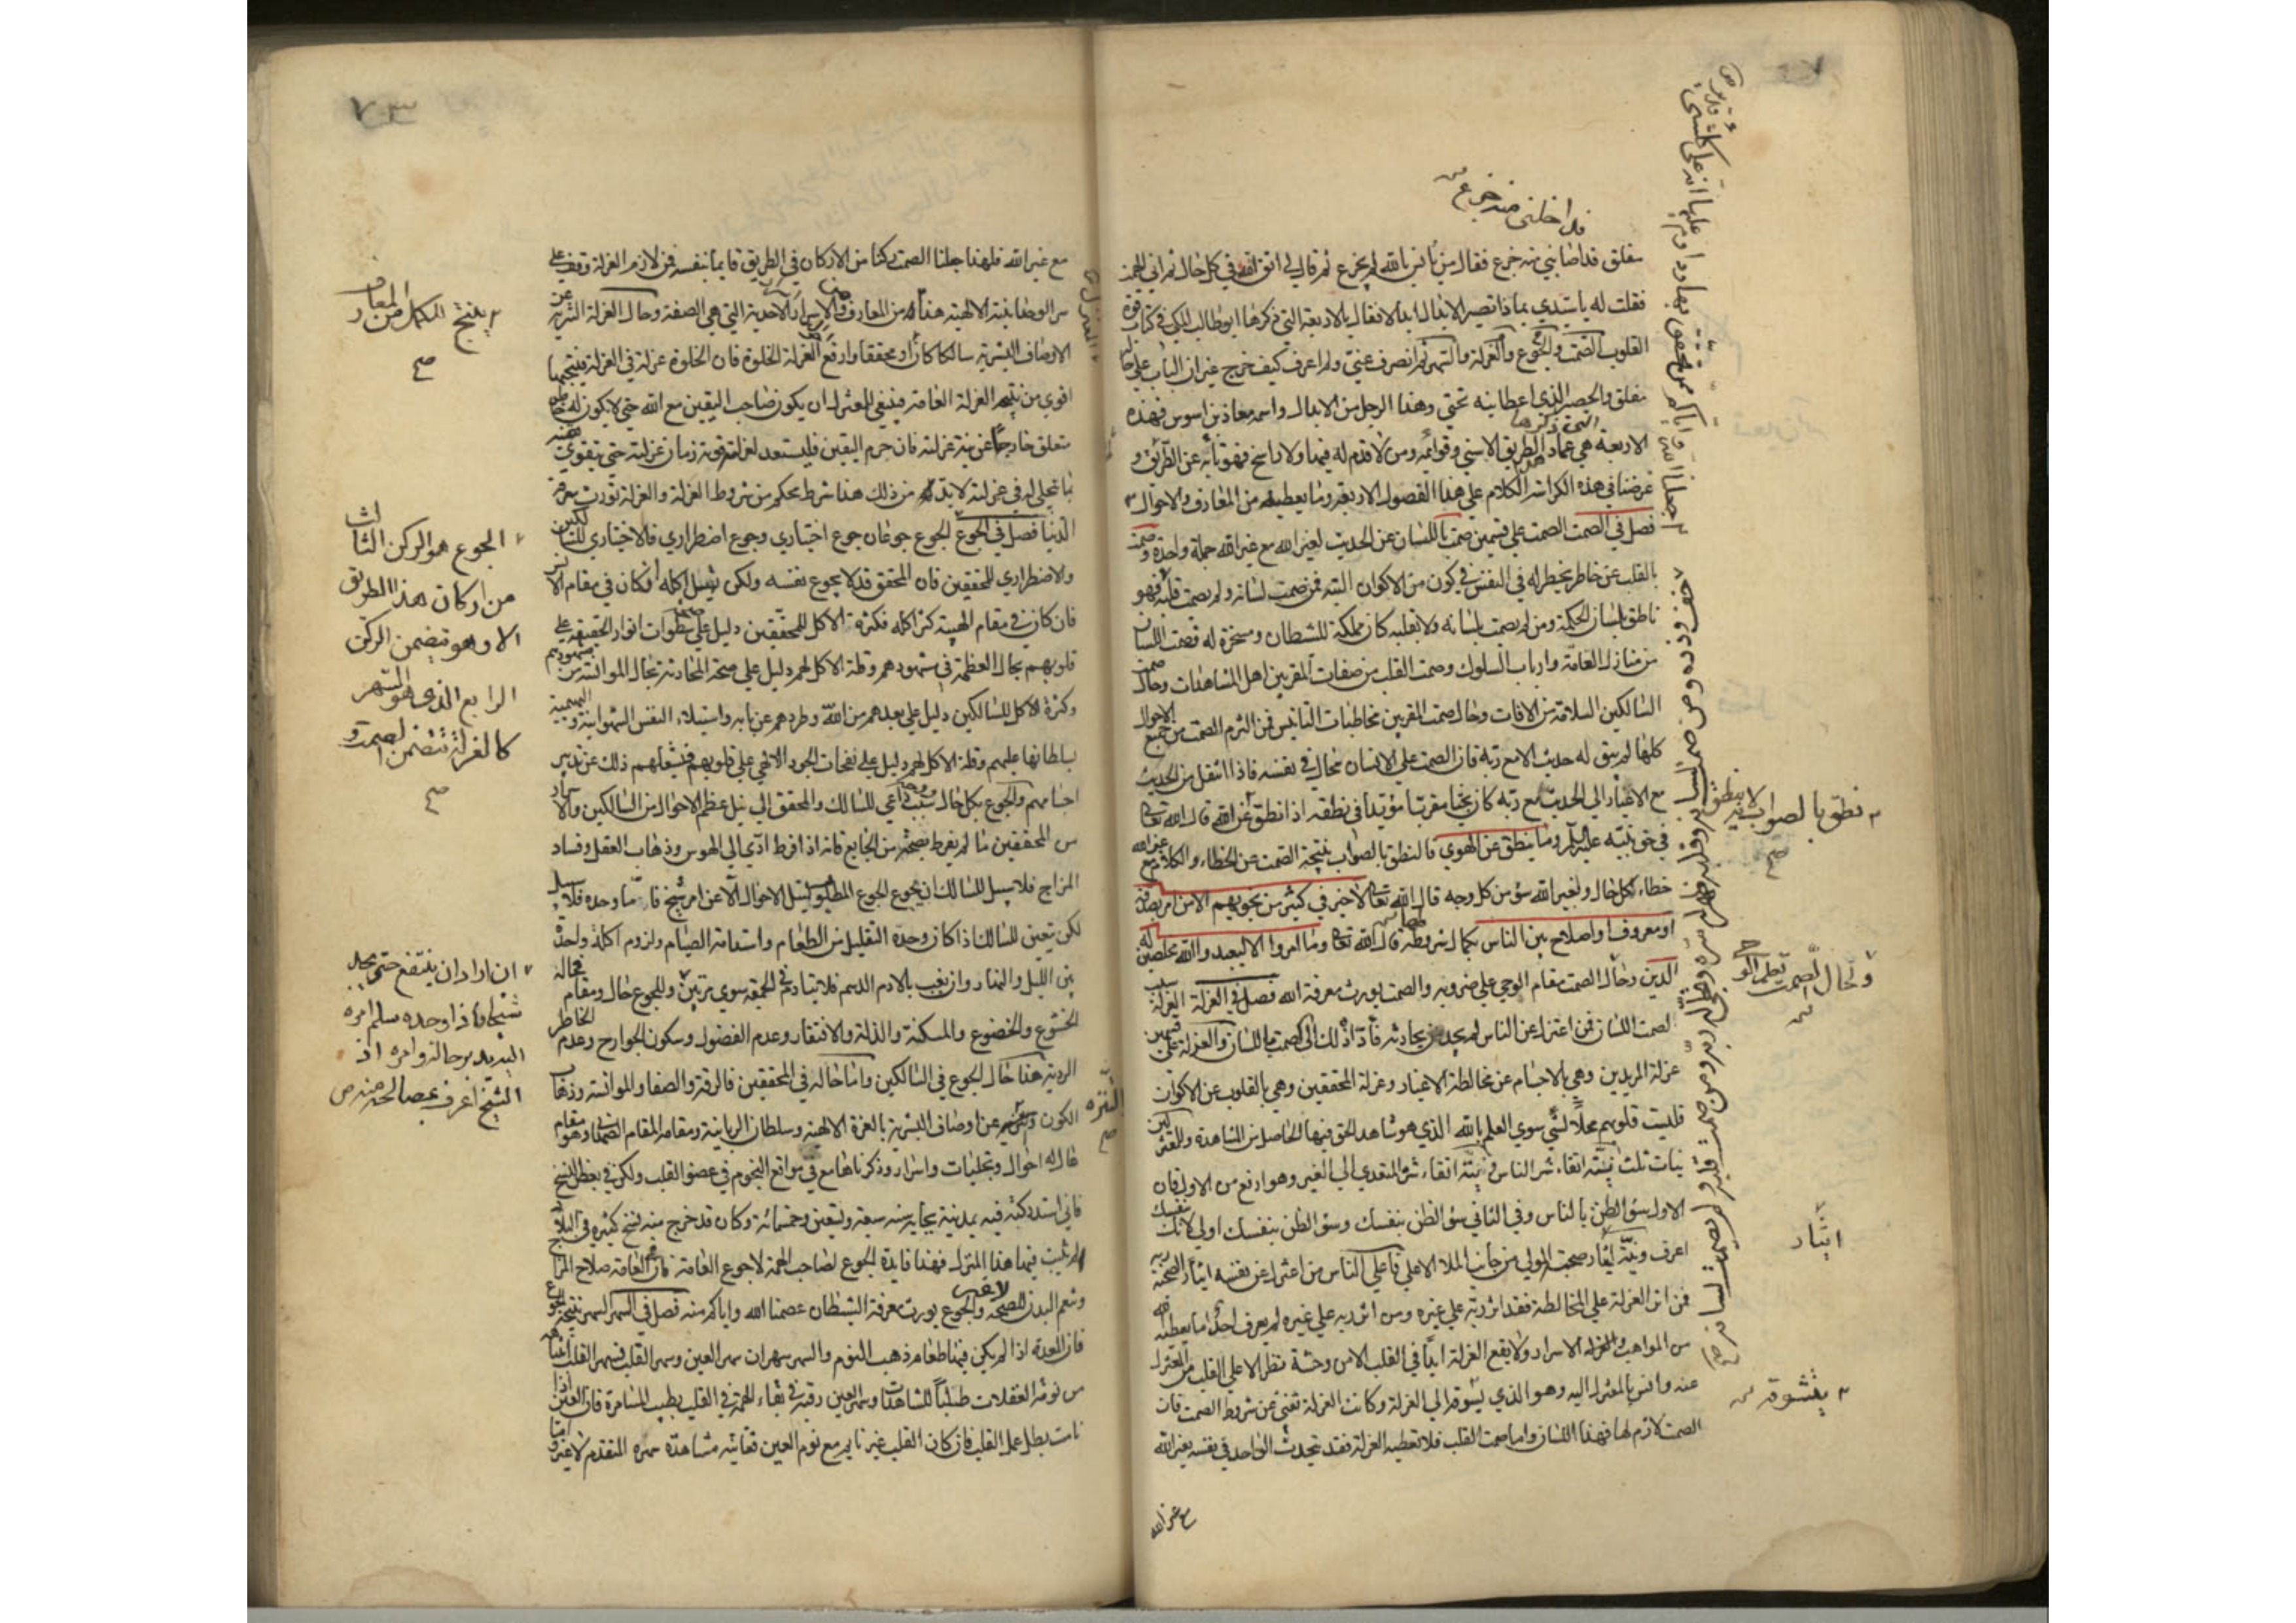 مغلق فداخلني منه خرع فقال من يأنس بالله لم يخرع ثم قال لي اتق الله في كل حال ثم اني الهمت
فقلت له يا سيدي بماذا تصير الابدال ابدالا فقال بالاربعة التي ذكرها ابو طالب المكي في كتاب قوة
القلوب الصمت والجوع والعزلة والسهر ثم انصرف عني ولم اعرف كيف خرج غير ان الباب على حاله
مغلق والحصير الذي اعطانيه تحتي وهذا الرجل من الابدال واسمه معاذ بن اسرس فهذه
الاربعة هي عماد الطريق الاسني وقوائمه ومن لا قدم له فيها ولا راسخ فهو تائه عن الطريق و
غرضنا في هذه الكراسة الكلام على هذا الفصول الاربعة وما يعطيه من المعارف والاحوال
فصل في الصمت الصمت على قسمين صمت باللسان عن الحديث لغير الله مع غير الله جملة واحدة وصمت
بالقلب عن خاطر يخطر له في النفس في كون من الاكوان البتة فمن صمت لسانه ولم يصمت قلبه فهو
ناطق بلسان الحكمة ومن لم يصمت بلسانه ولا بقلبه كان مملكة للشيطان ومسخرة له فصمت اللسان
من منازل العامة وارباب السلوك وصمت القلب من صفات المقربين اهل المشاهدات وحال صمت
السالكين السلامة من الافات وحال صمت المقربين مخاطبات التانيس فمن التزم الصمت من جميع الاحوال
كلها لم يبق له حديث الا مع ربه فان الصمت على الانسان محال في نفسه فاذا انتقل من الحديث
مع الاغيار الى الحديث مع ربه كان نجيا مقربا مؤيدا في نطقه اذا نطق عن الله قال الله تعالى
في حق نبيه عليه السلام وما ينطق عن الهوى فالنطق بالصواب نتيجة الصمت عن الخطاء والكلام مع غير الله
خطاء بكل حال ولغير الله سؤ من كل وجه قال الله تعالى لا خير في كثير من نجويهم الا من امر بصدقة
او معروف او اصلاح بين الناس بكمال شروطه قال الله تعالى وما امروا الا ليعبدوا الله مخلصين له
الدين وحال الصمت مقام الوحي على ضروبه والصمت يورث معرفة الله فصل في العزلة العزلة سبب
لصمت اللسان فمن اعتزل عن الناس لم يجد من يحادثه فأداه ذلك الى الصمت باللسان والعزلة على قسمين
عزلة المريدين وهي بالاجسام عن مخالطة الاغيار وعزلة المحققين وهي بالقلوب عن الاكوان
فليست قلوبهم محلا لشي سوى العلم بالله الذي هو شاهد الحق فيها الحاصل من المشاهدة وللمعتزلين
نيات ثلث نية اتقاء شر الناس ونية اتقاء شره المتعدي الى الغير وهو ارفع من الاول فان
الاول سؤ الظن بالناس وفي الثاني سؤ الظن بنفسك وسؤ الظن بنفسك اولى لانك بنفسك
اعرف ونية ايثار صحبة المولى من جانب الملا الاعلى فاعلى الناس من اعتزل عن نفسه ايثارا لصحبة ربه
فمن اثر العزلة على المخالطة فقد اثر ربه على غيره ومن اثر ربه على غيره لم يعرف احد ما يعطيه الله
من المواهب والاسرار ولا يقع العزلة ابدا في القلب الا من وحشة تطرا على القلب من المعتزل
عنه وانس بالمعتزل اليه وهو الذي يسوقه الى العزلة وكانت العزلة تغني عن شروط الصمت فان
الصمت لازم لها فهذا اللسان واما صمت القلب فلا تعطيه العزلة فقد يتحدث الواحد في نفسه بغير الله
مع غير الله
نطق بالصواب
وحال الصمت
ايثار
٧٣
مع غير الله فلهذا جعلنا الصمت ركنا من الاركان في الطريق قايما بنفسه فمن لازم العزلة وقف على
سر الوحدانية الالهية هذا له من المعارف والاسرار الاحدية التي هي الصفة وحال العزلة التنزيه عن
الاوصاف البشرية سالكا كان او محققا وارفع العزلة الخلوة فان الخلوة عزلة في العزلة فنتيجتها
اقوى من نتيجة العزلة العامة فينبغي للمعتزل ان يكون صاحب اليقين مع الله حتى لا يكون له خاطر
متعلق خارجا عن بيته عزلته فان حرم اليقين فليستعد لعزلته قوته زمان عزلته حتى يتقوى يقينه
بما تجلى له في عزلته لا بد من ذلك هذا شرط محكم من شروط العزلة والعزلة تورث معرفة
الدنيا فصل في الجوع الجوع جوعان جوع اختياري وجوع اضطراري فالاختياري للسالكين
والاضطراري للمحققين فان المحقق قد لا يجوع نفسه ولكن يقلل اكله ان كان في مقام الانس
فان كان في مقام الهيبة كثر اكله فكثرة الاكل للمحققين دليل على سطوات انوار الحقيقة على
قلوبهم بحال العظمة في شهودهم وقلة الاكل لهم دليل على صحة المحادثة بحال الموانسة من
وكثرة الاكل للسالكين دليل على بعدهم من الله وطردهم عن بابه واستيلاء النفس الشهوانية البهيمية
بسلطانها عليهم وقلة الاكل لهم دليل على نفحات الجود الالهي على قلوبهم فيشغلهم ذلك عن تدبير
اجسامهم والجوع بكل حال سبب داعي للسالك والمحقق الى نيل عظيم الاحوال من السالكين والاسرار
من المحققين ما لم يفرط من الجايع فانه اذا افرط ادى الى الهوس وذهاب العقل وفساد
المزاج فلا سبيل للسالك ان يجوع الجوع المطلوب لنيل الاحوال الا عن امر شيخ فاما وحده فلا سبيل
لكن يتعين للسالك اذا كان وحده التقليل من الطعام واستدامة الصيام ولزوم اكلة واحدة
بين الليل والنهار وان يغب بالادم الدسم فلا يتادم في الجمعة سوى مرتين وللجوع حال ومقام فحاله
الخشوع والخضوع والمسكنة والذلة والافتقار وعدم الفضول وسكون الجوارح وعدم الخاطر
الردية هذا حال الجوع في السالكين واما حاله في المحققين فالرقة والصفا والموانسة وذهاب
الكون والتنزه عن اوصاف البشرية بالعزة الالهية وسلطان الربانية ومقامه المقام الصمداني وهو مقام
عال له احوال وتجليات واسرار وذكرناها مع في مواقع النجوم في عضو القلب ولكن في بعض النسخ
فاني استدركته فيه بمدينة بجاية سنه سبعة وتسعين وخمسمائة وكان قد خرج منه نسخ كثيرة في البلاد
لم يثبت فيها هذا المنزل فهذا فايدة الجوع لصاحب الهمة لا جوع العامة فان جوع العامة صلاح المزاج
وتنعم البدن للصحة والجوع يورث معرفة الشيطان عصمنا الله واياكم منه فصل في السهر السهر نتيجة الجوع
فان المعدة اذا لم يكن فيها طعام ذهب النوم والسهر سهران سهر العين وسهر القلب فسهر القلب انتباهه
من نومة الغفلات طلبا للمشاهدات وسهر العين رغبة في بقاء الهمة في القلب لطلب المسامرة فان العين اذا
نامت بطل عمل القلب فان كان القلب غير نايم مع نوم العين فغايته مشاهدة سهره المتقدم لا غير واما
الجوع هو الركن الثالث
من اركان هذا الطريق
الا وهو يتضمن الركن
الرابع الذي هو السهر
كالعزلة تتضمن الصمت
صح
ان اراد ان ينتفع حتى يجد
شيخا فاذا وجده سلم امره
اليه يدبر حاله وامره اذ
الشيخ اعرف بمصالحه منه
التنزه
صح